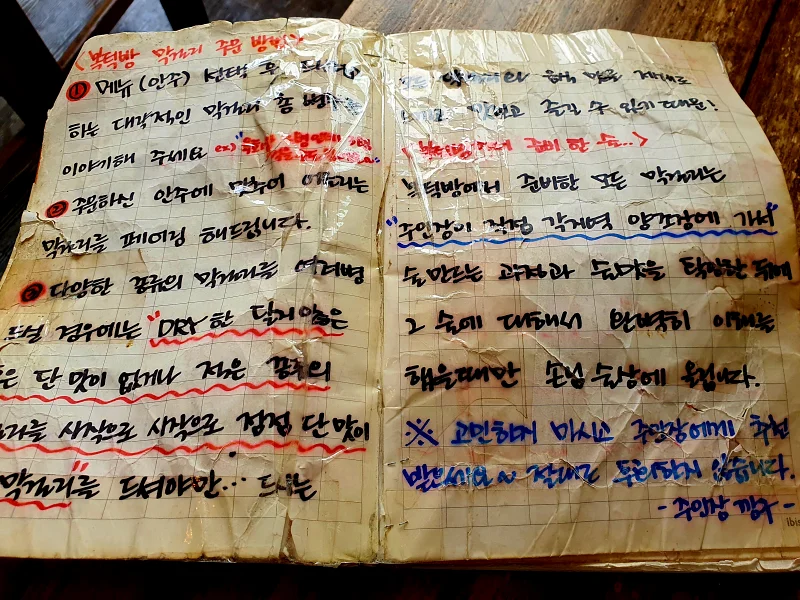 <복덕방 막걸리 주문 방법>
① 메뉴(안주) 선택 후
하는 대략적인 막걸리
이야기해 주세요 ex)
② 주문하신 안주에 맞추어 어울리는
막걸리를 페어링 해드립니다.
③ 다양한 종류의 막걸리를 여러병
드실 경우에는 "DRY한 달지않은
은 단 맛이 없거나 적은 종류의
막걸리를 시작으로 시작으로 점점 단 맛이
막걸리"를 드셔야만... 드시는
맛을 제대로
즐길 수 있기 때문!
준비 한 술...>
복덕방에서 준비한 모든 막걸리는
"주인장이 직접 각지역 양조장에 가서"
술 만드는 과정과 술맛을 탐방한 뒤에
그 술에 대해서 완벽히 이해를
했을때만 손님 술상에 올립니다.
※ 고민하지 마시고 주인장에게 추천
받으세요~ 절대로 후회하지 않습니다.
- 주인장
ibis